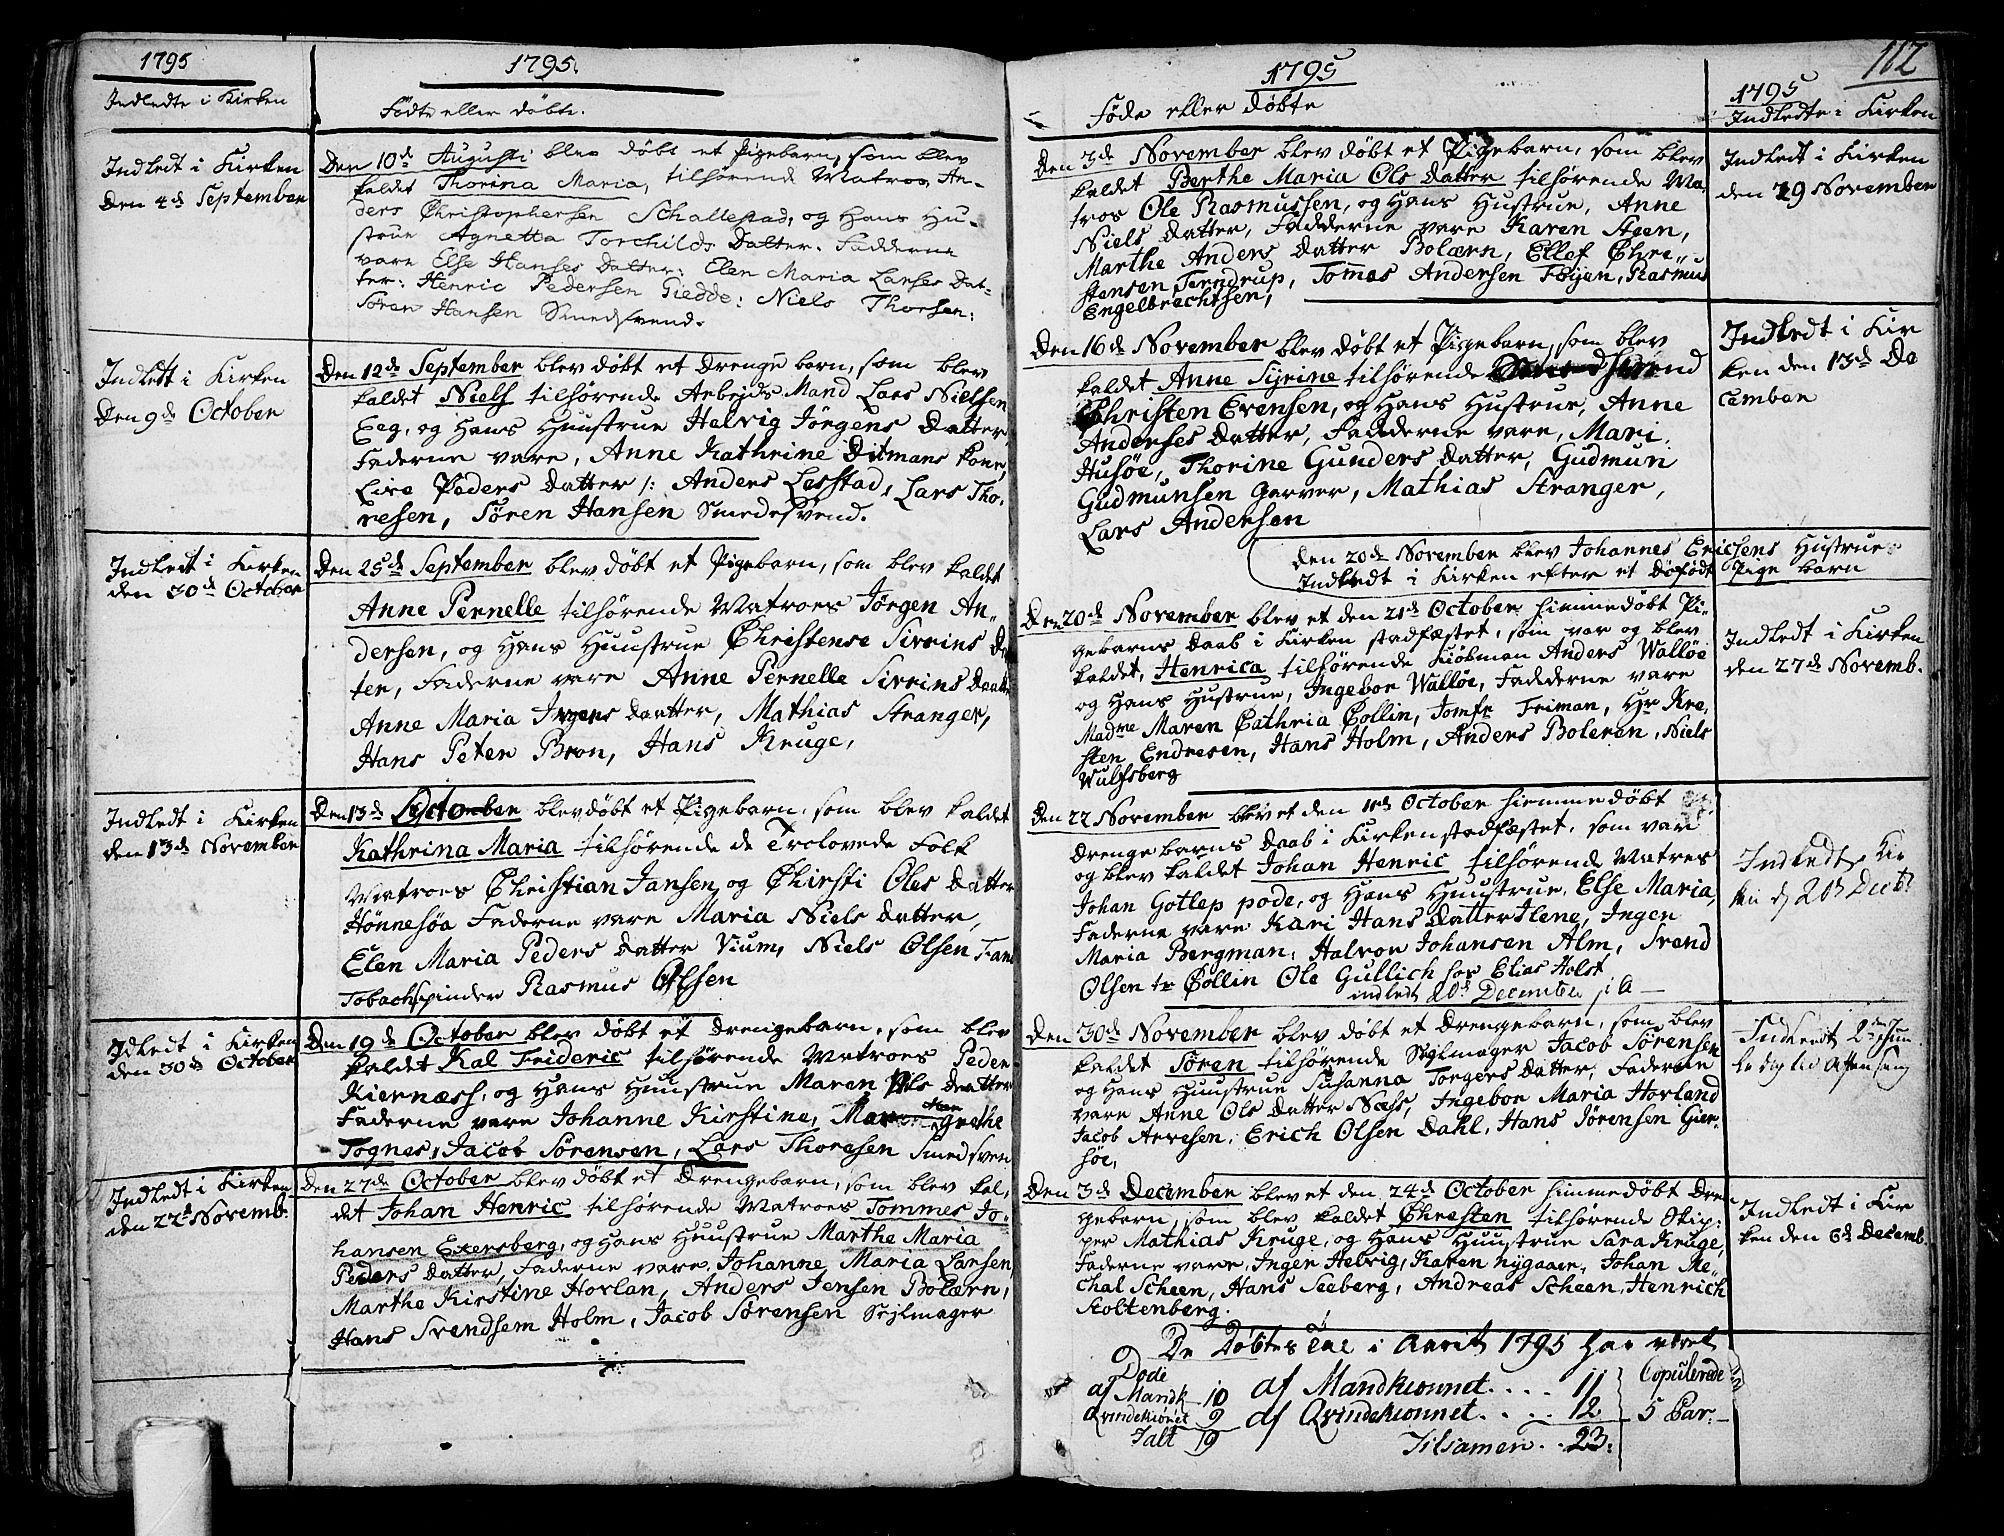 1795
Indledte i Kirken
1795
Fødte eller døbte.
Indledt i Kirken
Den 4de September
Den 10de Augusti blev døbt et Pigebarn, som blev
kaldet Thorina Maria, tilhørende Matros An-
ders Christophersen Schallestad, og Hans Hu-
strue Agnetta Torchilds Datter. Fadderne
vare Else Hanses Datter: Elen Maria Larses Dat-
ter: Henric Pedersen Giedde: Niels Thorsen:
Søren Hansen Smedsvend.
Indledt i Kirken
Den 9de October
Den 12de September blev døbt et Drenge barn, som blev
kaldet Niels tilhørende Arbejds Mand Lars Nielsen
Eeg, og Hans Huustrue Helvig Jörgens Datter
Faderne vare, Anne Kathrine Ditmans kone,
Live Peders Datter /: Anders Lesstad, Lars Tho-
resen, Søren Hansen Smedesvend.
Indledt i Kirken
den 30de October
Den 25de September blev døbt et Pigebarn, som blev kaldet
Anne Pernelle tilhørende Matroes Jørgen An-
dersen, og Hans Huustrue Christense Sivrins Da
ter, Faderne vare Anne Pernelle Sivrins Daatter
Anne Maria Jrgens Daatter, Mathias Stranger,
Hans Peter Bron, Hans Kruge,
Indledt i Kirken
den 13de November
Den 13de October blev døbt et Pigebarn, som blev kaldet
Kathrina Maria tilhørende de Trolovede Folk
Matroes Christian Jansen, og Chirsti Oles Datter
Hönnesöa Faderne vare Maria Niels Datter,
Elen Maria Peders Datter Vium, Niels Olsen
Tobachspinder Rasmus Olsen
Jdledt i Kirken
den 30de October
Den 19de October blev døbt et Drengebarn, som blev
kaldet Kal Frideric tilhørende Matroes Peder
Kiernæss, og Hans Huustrue Maren Nils Datter
Faderne vare Johanne Kirstine, Grethe
Tognes, Jacob Sörensen, Lars Thoresen Smedsven
Indledt i Kirken
den 22de Novemb.
Den 27de October blev døbt et Drengebarn, som blev kal,
det Johan Henric tilhørende Matroes Tommes Jo-
hansen Exersberg, og Hans Huustrue Marthe Maria
Peders Datter, Faderne vare, Johanne Maria Larsen,
Marthe Kirstine Horlan, Anders Jensen Bolærn,
Hans Svendsem Holm, Jacob Sørensen Sejlmager
112
1795
Føde eller døbte
1795
Indledte i Kirken
Den 3de November blev døbt et Pigebarn, som blev
kaldet Berthe Maria Ols Datter tilhørende Ma-
tros Ole Rasmussen, og Hans Hustrue, Anne
Niels Datter, Fadderne vare Karen Steen,
Marthe Anders Datter Bolærn, Ellef Chre-
stensen Terndrup, Tomas Andersen Føyen, Rasmus
Engelbrechtsen,
Indledt i Kirken
den 29 November
Den 16de November blev døbt et Pigebarn, som blev
kaldet Anne Syrine tilhørende
Christen Evensen, og Hans Hustrue, Anne
Anderses Datter, Fadderne vare, Mari
Husöe, Thorine Gunders Datter, Gudmun
Gudmunsen Garver, Mathias Stranger,
Lars Andersen
Indledt i Kir
ken den 13de De
cember
Den 20de November blev Johannes Ericksens Hustrue
Indledt i Kirken efter et Døfødt Pige barn
Den 20de November blev et den 21de October himmedøbt Pi-
gebarns Daab i Kirken stadfæstet, som var og blev
kaldet, Henrica tilhørende Kiöbman Anders Wallöe
og Hans Hustrue, Ingebor Wallöe, Fadderne vare
Madme Maren Cathria Collin, Jomfr Friman, Hr Kre,
sten Endresen, Hans Holm, Anders Boleren, Niels
Wulfsberg
Indledt i Kirken
den 27de Novemb.
Den 22 November blev et den 11de October hiemmedøbt
Drenge barns Daab i Kirken stadfæstet, som var
og blev kaldet Johan Henric tilhørende Matros
Johan Gotlep pode, og Hans Huustrue, Else Maria,
Faderne vare Kari Hans Datter Ilene, Ingen
Maria Bergman, Halvor Johansen Alm, Svend
Olsen tr Collin Ole Gullich for Elias Holst
indledt 20de December
Indledt Kir
20de Decbr
Den 30de November blev døbt et Drengebarn, som blev
kaldet Søren tilhørende Sejlmager Jacob Sørensen
og Hans Huustrue Susanna Torgers Datter, Faderne
vare Anne Ols Datter Næss, Ingebor Maria Horland
Jacob Arvesen, Erich Olsen Dahl, Hans Jörensen Gier-
söe,
Indledt 2den Juu
ledag Aftensang
Den 3de December blev et den 24de October himmedøbt Dren
gebarn, som blev kaldet Christen tilhørende Skip:
per Mathias Kruge, og Hans Huustrue Sara Kruge,
Faderne vare, Inger Helvig, Karen Nygaar, Johan Me-
chal Scheen, Hans Seeberg, Andreas Scheen, Henrich
Stoltenberg.
Indledt i Kir
ken den 6de Decemb.
De Döbtes Tal i Aarit 1795 har været
Døde
af Mandk 10
Qvindekiönet 9
Jalt 19
af Mandkiønnet.... 11
af Qvindekiønnet.... 12
Tilsamen.. 23:
Copulerede
5 Par.